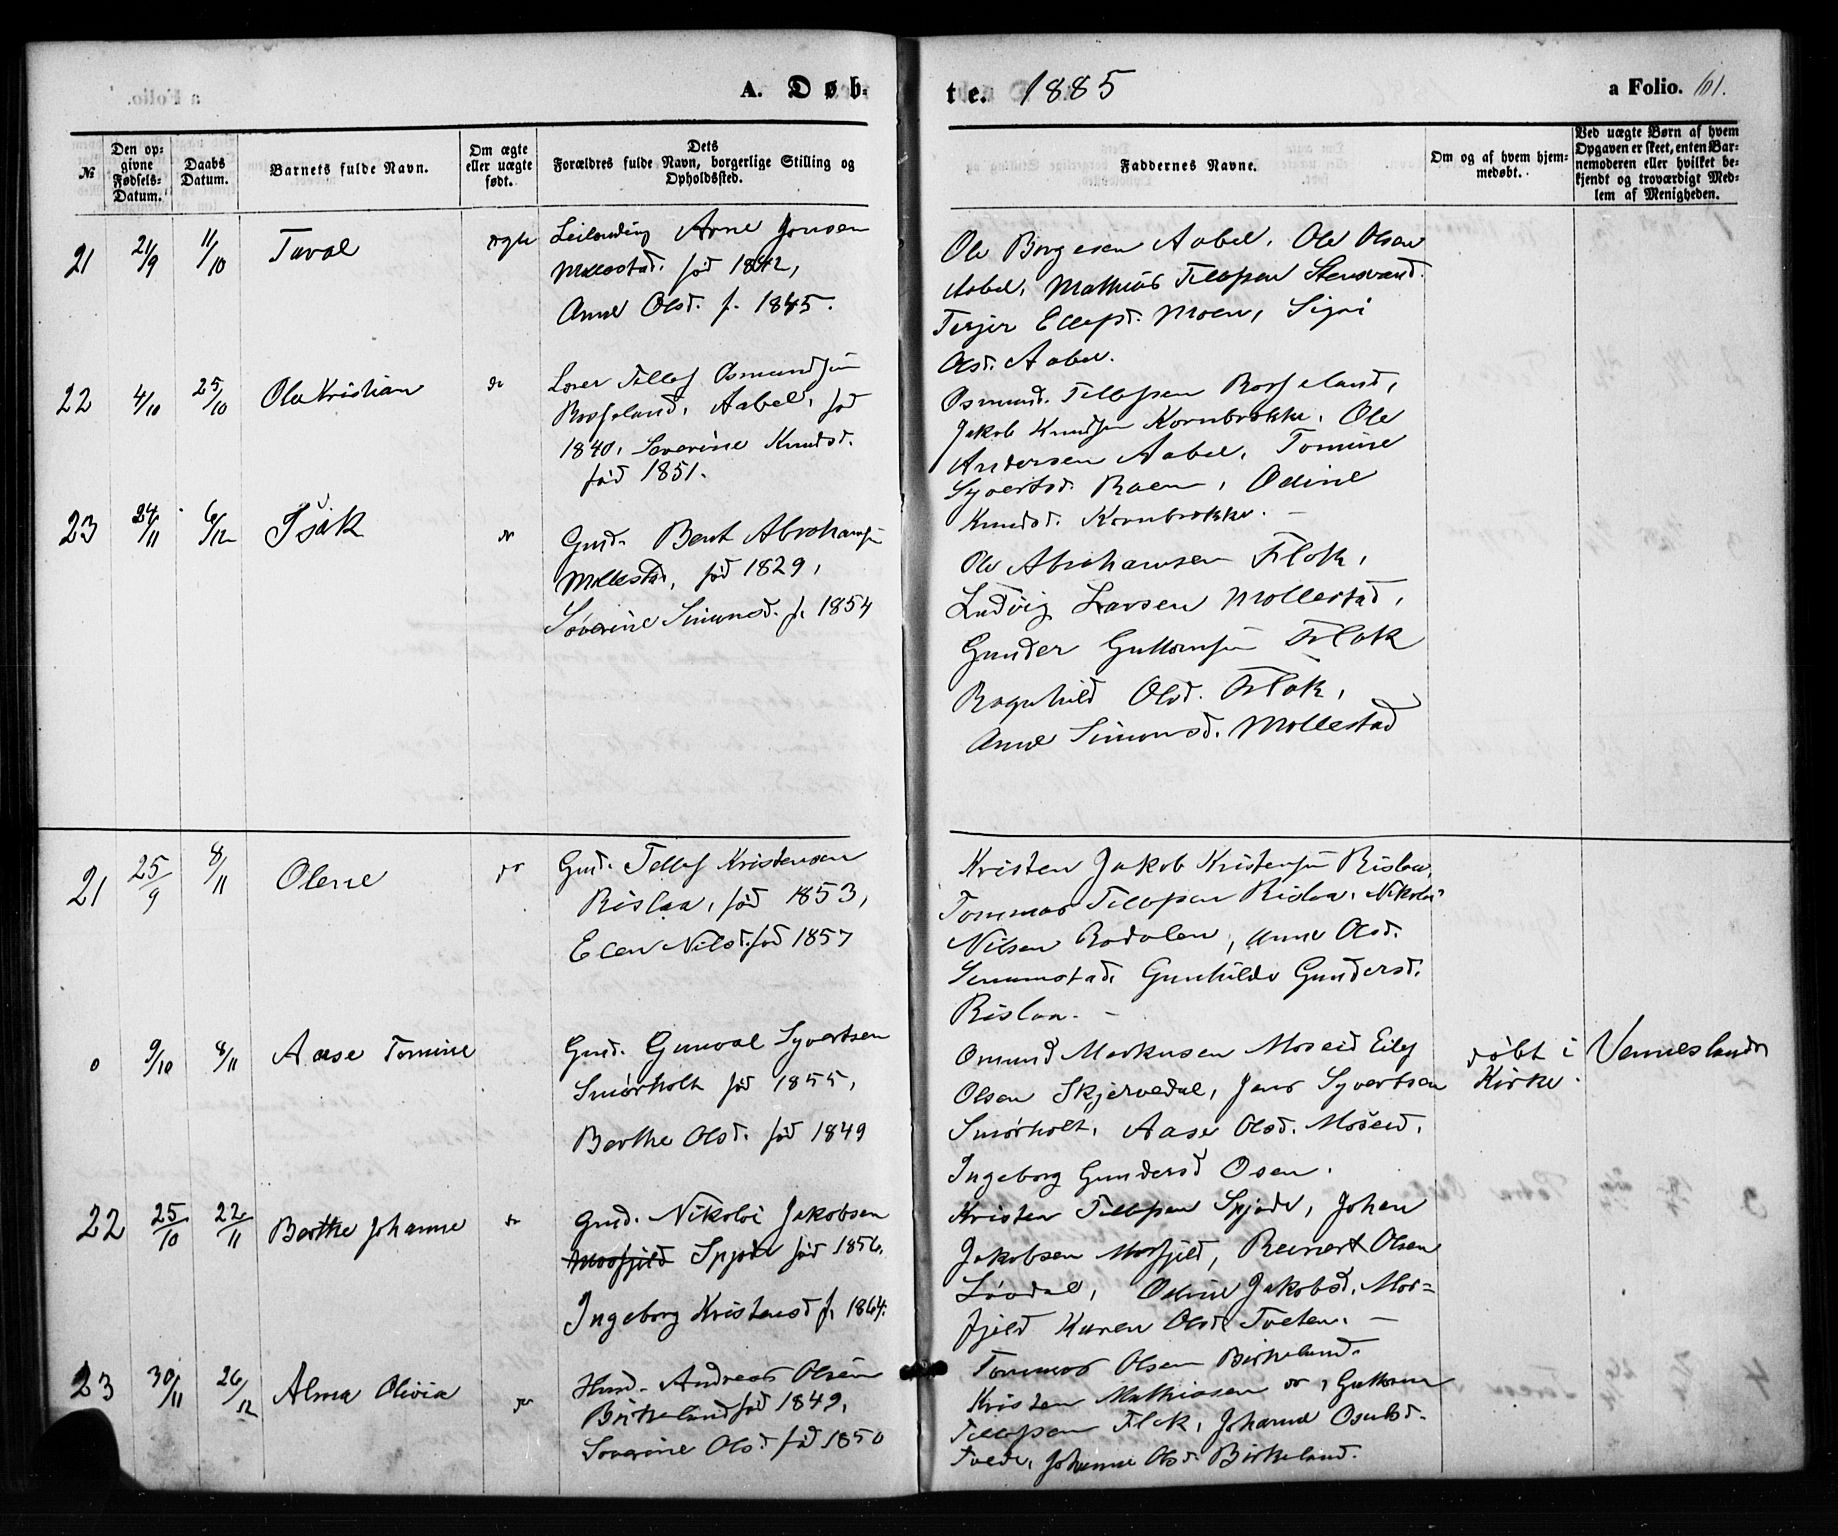 A. Døb-
te. 1885
a Folio. 61.
№
Den op-
givne
Fødsels-
Datum.
Daabs
Datum.
Barnets fulde Navn.
Om ægte
eller uægte
født.
Dets
Forældres fulde Navn, borgerlige Stilling og
Opholdssted.
Faddernes Navne.
Om og af hvem hjem-
medøbt.
Ved uægte Børn af hvem
Opgaven er skeet, enten Bar-
nemoderen eller hvilket be-
kjendt og troværdigt Med-
lem af Menigheden.
21 21/9 11/10 Taral ægte Leilending Arne Jonsen
Mollestad. fød 1842,
Anne Olsd. f. 1845.
Ole Borgesen Aabel. Ole Olsen
Aabel, Mathias Tellefsen Stensvand.
Terjer Ellefsd. Moen, Signi
Olsd. Aabel.
22 4/10 25/10 Ole Kristian do Tellef Osmundsen
Røsseland, Aabel, fød
1840, Severine Knudsd.
fød 1851.
Osmund Tellefsen Røsseland,
Jakob Knudsen Kornbrække. Ole
Andersen Aabel, Tomine
Syvertsd. Roen, Odine
Knudsd. Kornbrække. -
23 24/11 6/12 Isak do Gmd. Bent Abrahamsen
Mollestad, fød 1829,
Søverine Simonsd. f. 1854
Ole Abrahamsen Flak,
Ludvig Larsen Mollestad,
Gunder Guttormsen Flak
Ragnhild Olsd. Flak,
Anne Simonsd. Mollestad
21 25/9 8/11 Olene do Gmd. Tellef Kristensen
Rislaa, fød 1853,
Elen Nilsd. fød 1857
Kristen Jakob Kristensen Rislaa,
Tommas Tellefsen Rislaa, Nikolai
Nilsen Rodalen, Anne Olsd.
Senumstad, Gunhilde Gundersd.
Rislaa. -
0 9/10 8/11 Aase Tomine Gmd. Gunval Syvertsen
Smørholt fød 1855,
Berthe Olsd. fød 1849
Osmund Markusen Moseid Eilef
Olsen Skjervedal, Jens Syvertsen
Smørholt, Aase Olsd. Moseid,
Ingeborg Gundersd Osen.
døbt i Venneslands
Kirke.
22 25/10 22/11 Berthe Johanne do Gmd. Nikolai Jakobsen
Mosfjeld Spjode fød 1856.
Ingeborg Kristensd f. 1864.
Kristen Tellefsen Spjode, Johan
Jakobsen Mosfjeld, Reinert Olsen
Løvdal, Odine Jakobsd. Mos=
fjeld Karen Olsd. Tveten. -
23 30/11 26/12 Alma Olivia do Husd. Andreas Olsen
Birkeland fød 1849,
Soverine Olsd fød 1850
Tommas Olsen Birkeland.
Kristen Mathiasen do, Guttorm
Tellefsen Flak, Johanne Osuldsd.
Tvede, Johanne Olsd Birkeland.